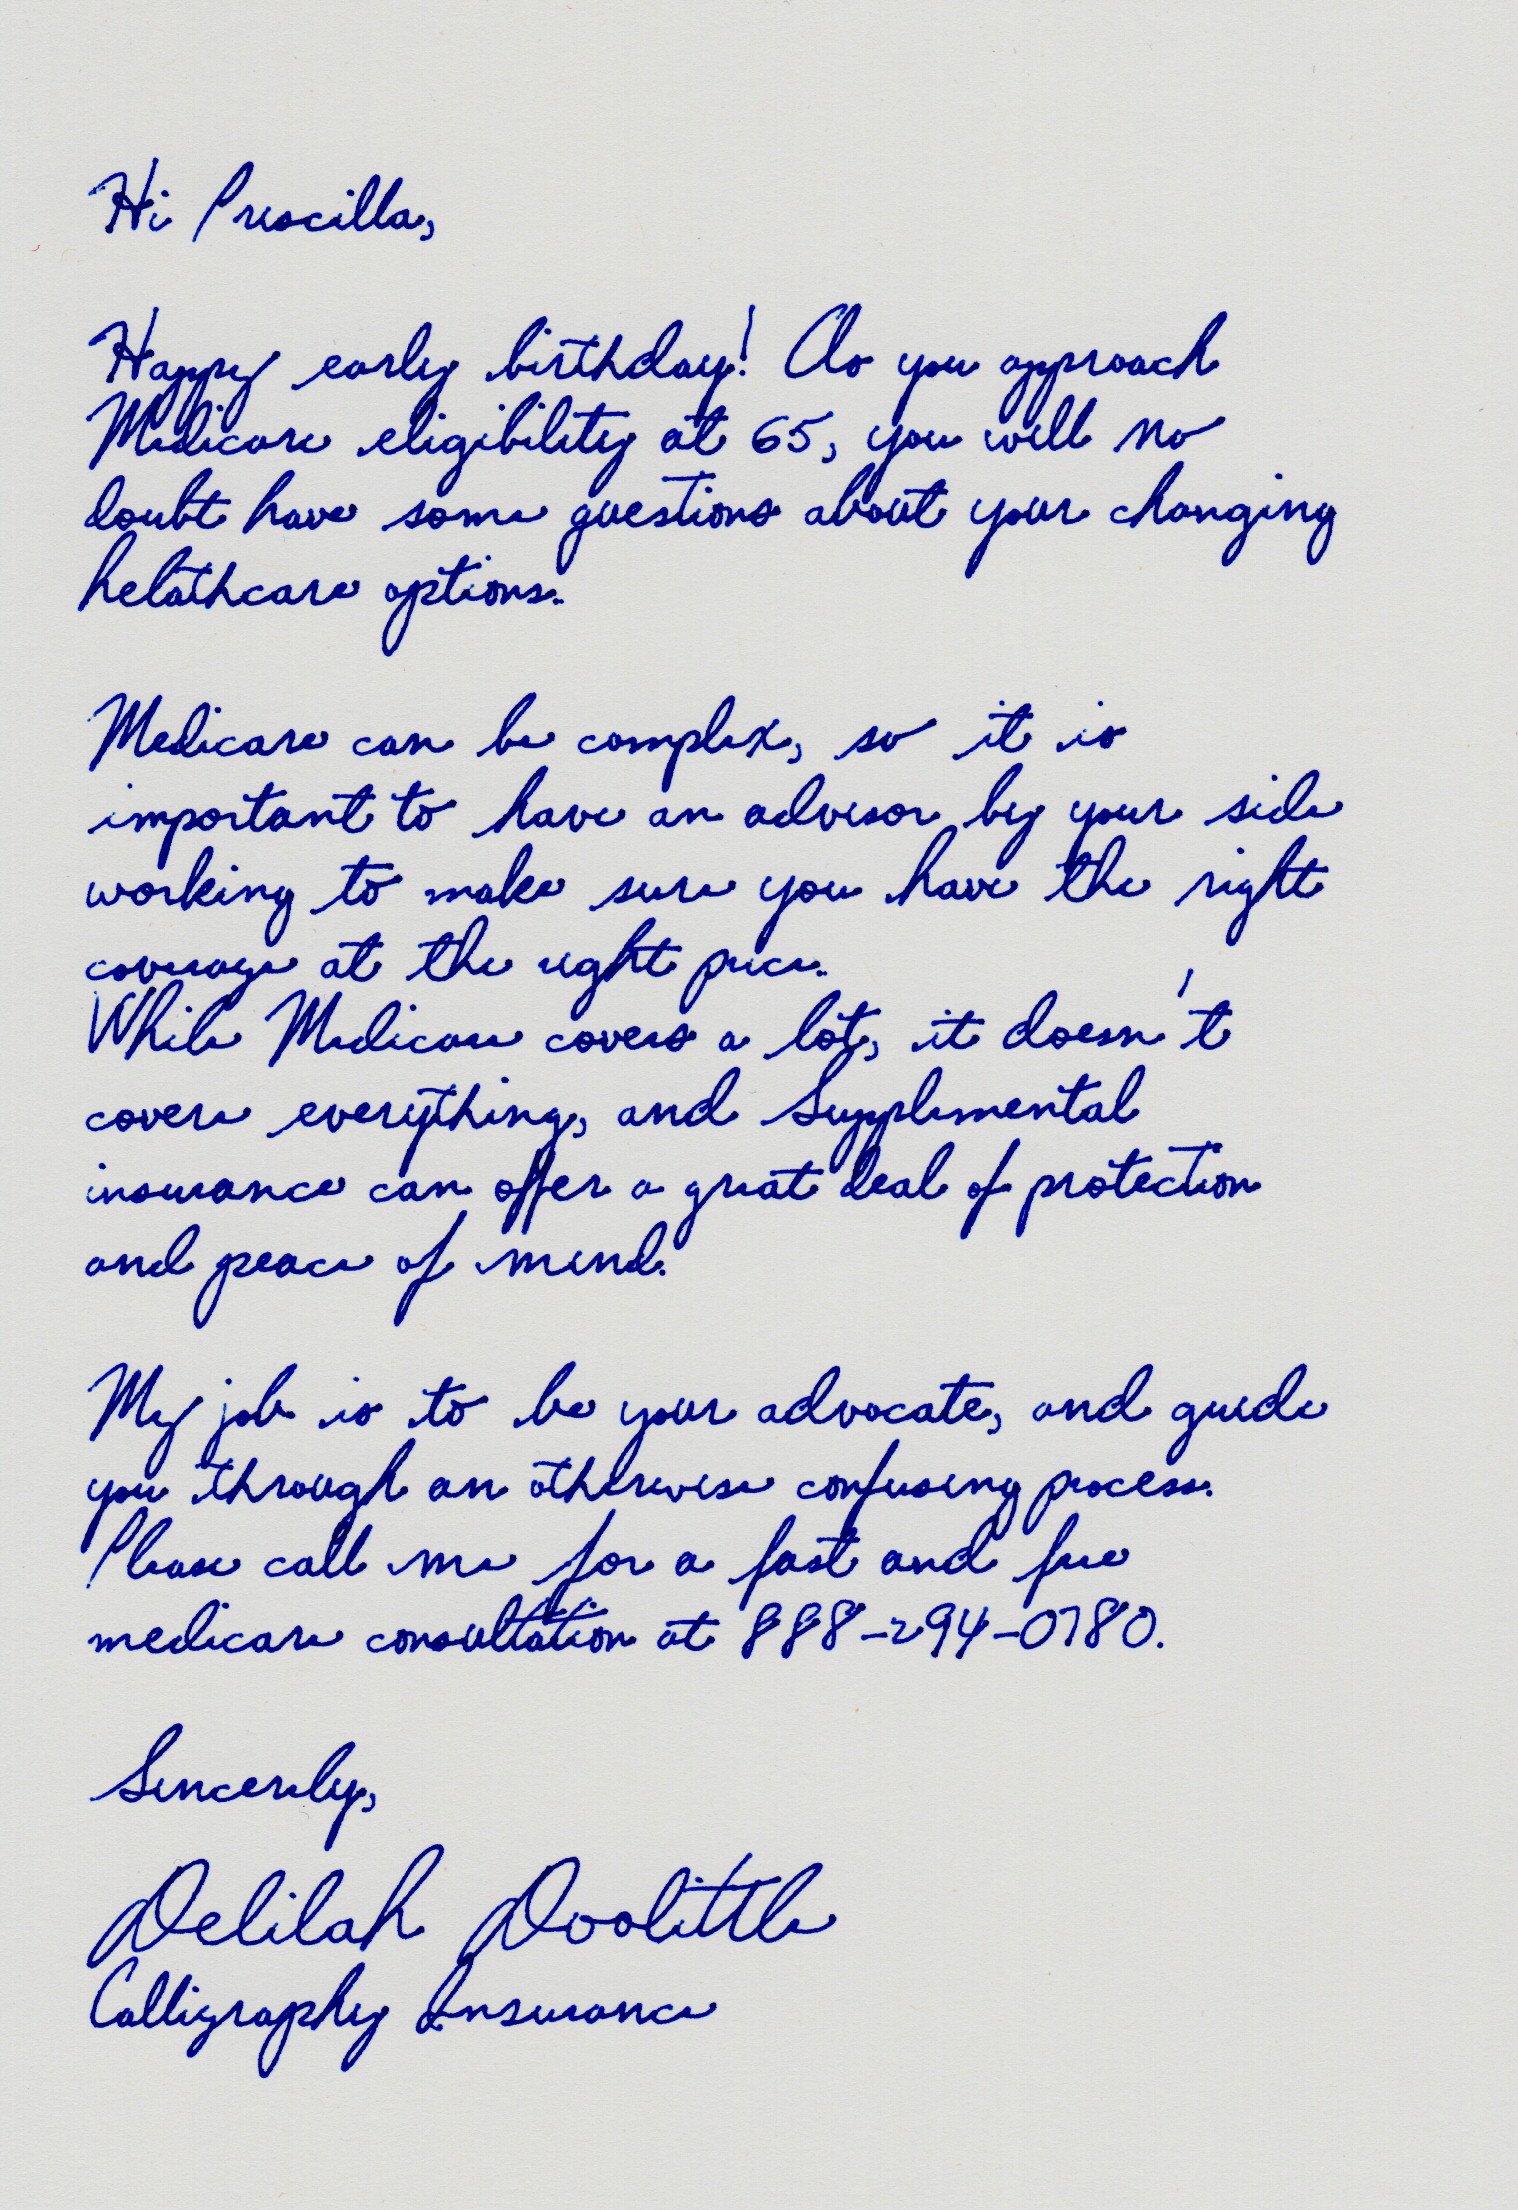 Hi Priscilla,
Happy early birthday! As you approach
Medicare eligibility at 65, you will no
doubt have some questions about your changing
helathcare options.
Medicare can be complex, so it is
important to have an advisor by your side
working to make sure you have the right
coverage at the right price.
While Medicare covers a lot, it doesn't
covere everything, and Supplemental
insurance can offer a great deal of protection
and peace of mind.
My job is to be your advocate, and guide
you through an otherwise confusing process.
Please call me for a fast and free
medicare consultation at 888-294-0780.
Sincerely,
Delilah Doolittle
Calligraphy Insurance